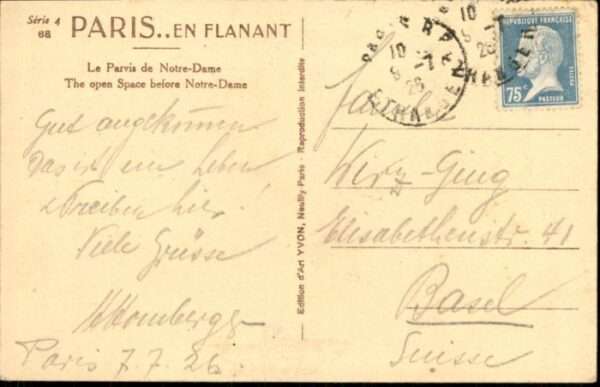 Série 4
68
PARIS...EN FLANANT
Le Parvis de Notre-Dame
The open Space before Notre-Dame
Gut angekommen
Das ist ein Leben
& Treiben hier!
Viele Grüsse
Paris 7.7.26.
Edition d'Art YVON, Neuilly Paris - Reproduction interdite
10
9-7
26
ETRANGER
10
9-7
26
ETRANGER
RÉPUBLIQUE FRANÇAISE
75c
POSTES
PASTEUR
Familie
Wirz-Ginz
Elisabethenstr. 41
Basel
Suisse